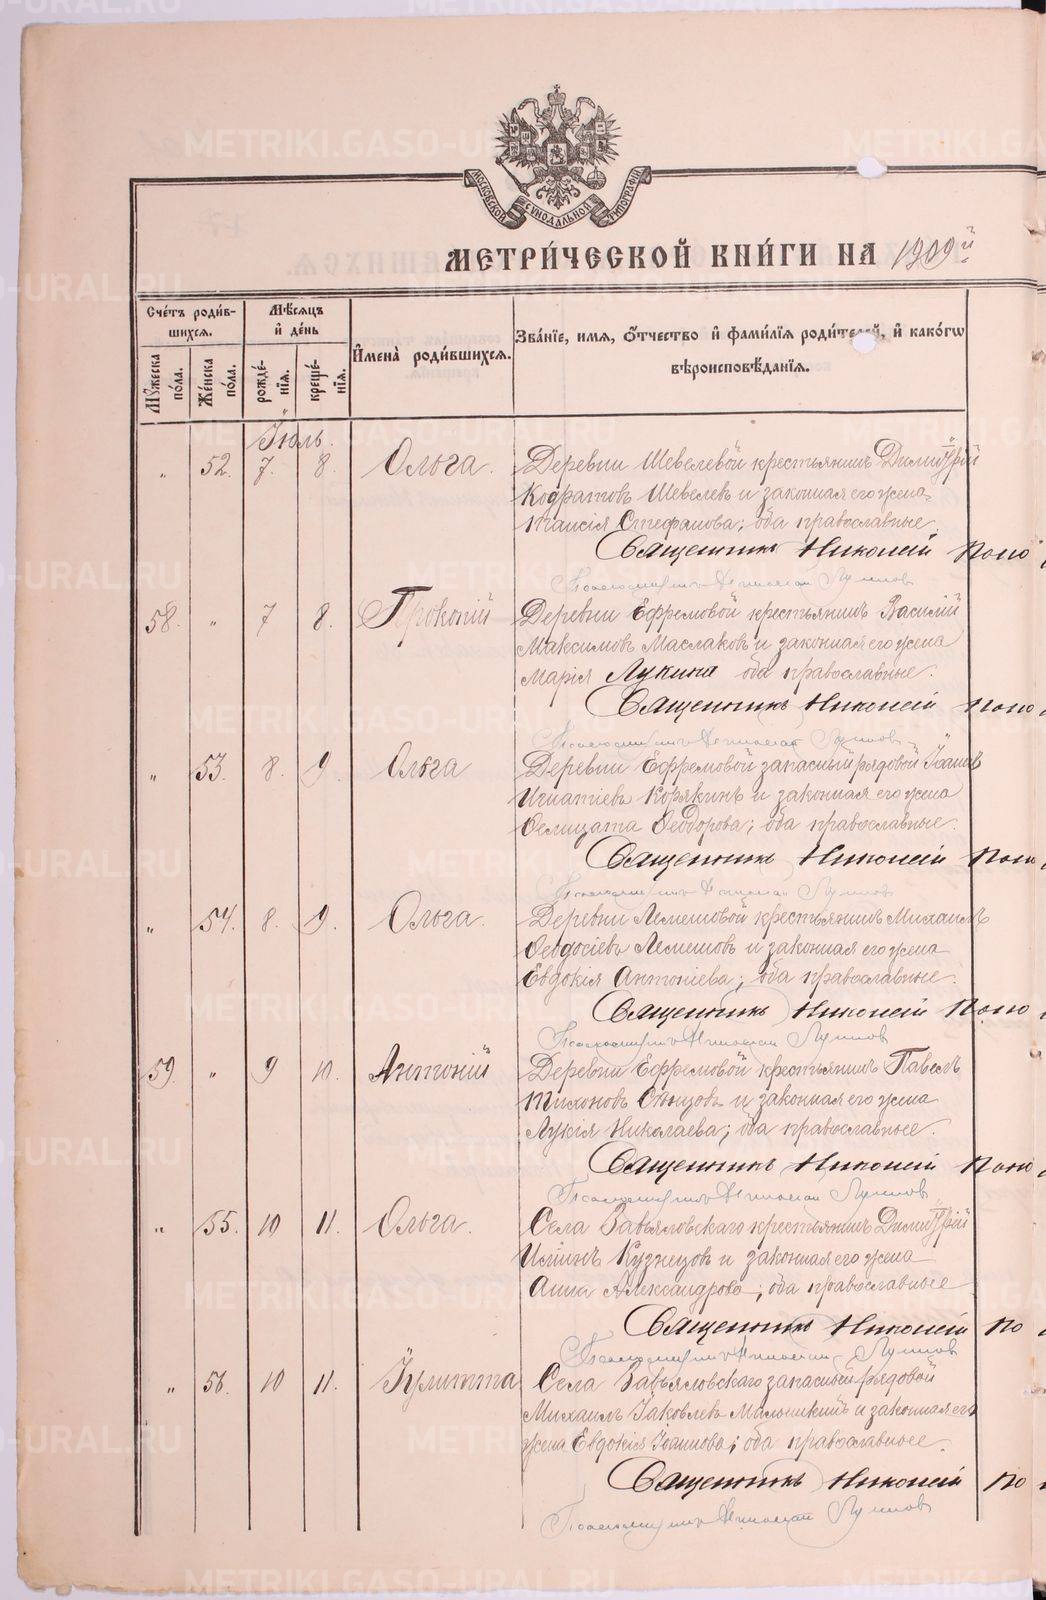 МОСКОВСКОЙ СѴНОДАЛЬНОЙ ТИПОГРАФІИ
МЕТРИ́ЧЕСКОЙ КНИ́ГИ НА 1909й
Сче́тъ роди́в-
шихся.
Мѣ́сяцъ
и де́нь
Мꙋ́жеска по́ла.
Же́нска по́ла.
рожде́-нїя.
креще́-нїя.
Имена̀ роди́вшихся.
Зва́нїе, имя, о́тчество и фами́лїя роди́телей, и како́гѡ
вѣроисповѣ́данїя.
Іюль.
" 52. 7. 8. Ольга. Деревни Шевелевой крестьянинъ Димитрій
Кодратовъ Шевелевъ и законная его жена
Таисія Стефанова; оба православные.
Священникъ Николай Попо
Псаломщикъ
58. " 7 8. Прокопій Деревни Ефремовой крестьянинъ Василій
Максимовъ Маслаковъ и законная его жена
Марія Лукина оба православные.
Священникъ Николай Попо
Псаломщикъ
" 53. 8. 9. Ольга Деревни Ефремовой запасный рядовой Іоаннъ
Игнатіевъ Корякинъ и законная его жена
Фелицата Феодорова; оба православные.
Священникъ Николай Попо
Псаломщикъ
" 54. 8. 9. Ольга. Деревни Лемешовой крестьянинъ Михаилъ
Февдосіевъ Лемешовъ и законная его жена
Евдокія Антоніева; оба православные.
Священникъ Николай Попо
Псаломщикъ
59. " 9 10. Антоній Деревни Ефремовой крестьянинъ Павелъ
Тихоновъ и законная его жена
Лукія Николаева; оба православные.
Священникъ Николай Попо
Псаломщикъ
" 55. 10 11. Ольга. Села Завьяловскаго крестьянинъ Димитрій
Кузнецовъ и законная его жена
Анна Александрова; оба православные
Священникъ Николай По
Псаломщикъ
" 56. 10 11. Іулитта Села Завьяловскаго запасный рядовой
Михаилъ Іаковлевъ и законная его
жена Евдокія Іоаннова; оба православные.
Священникъ Николай По
Псаломщикъ
METRIKI.GASO-URAL.RU